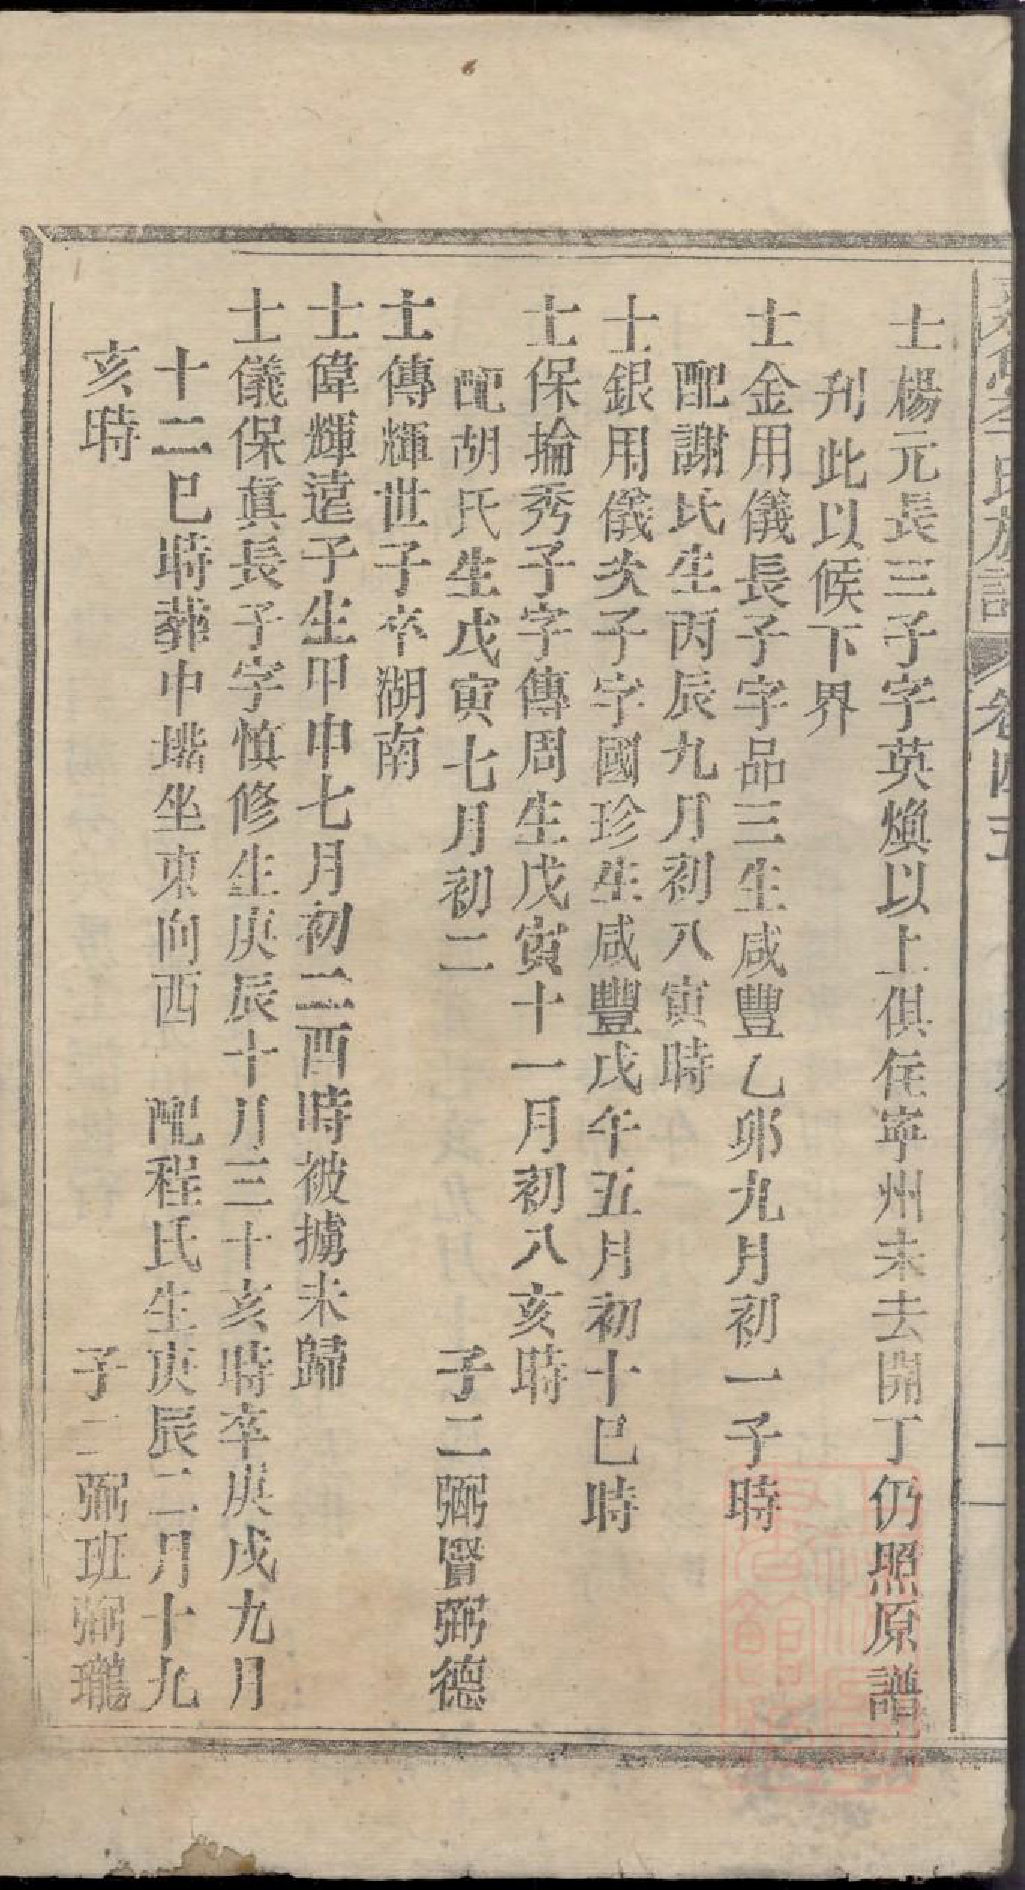 士楊元長三子字英煥以上俱住寧州未去開丁仍照原譜
刋此以候下界
士金用儀長子字品三生咸豐乙卯九月初一子時
配謝氏生丙辰九月初八寅時
士銀用儀次子字國珍生咸豐戊午五月初十巳時
士保掄秀子字傳周生戊寅十一月初八亥時
配胡氏生戊寅七月初二 子二弼賢弼德
士傳輝世子卒湖南
士偉輝遠子生甲申七月初二酉時被擄未歸
士儀保眞長子字慎修生庚辰十月三十亥時卒庚戌九月
十二巳時葬中墈坐東向西 配程氏生庚辰二月十九
亥時 子二弼班弼瓏